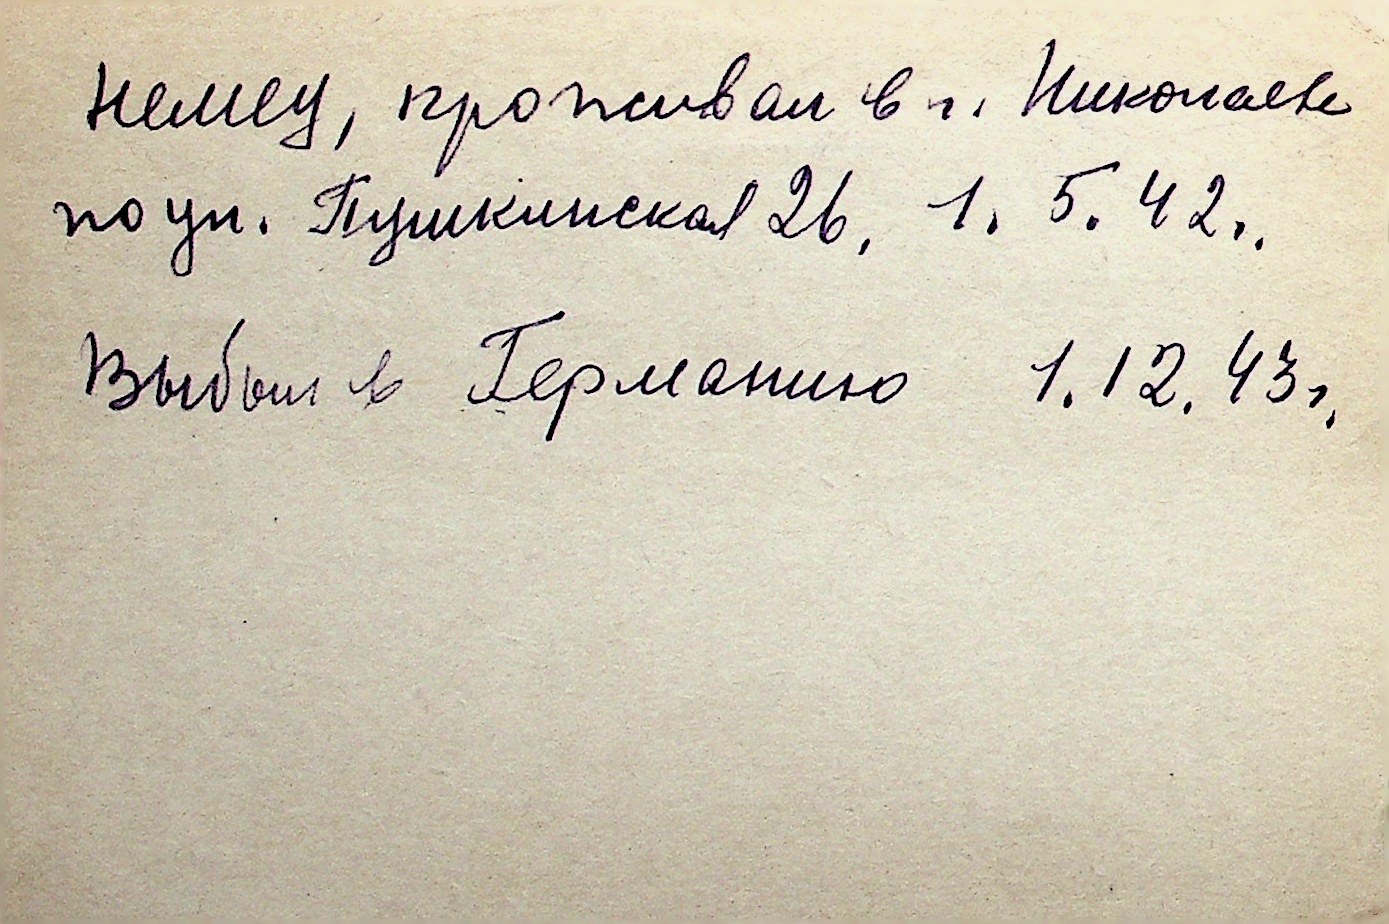 Немец, проживал в г. Николаеве
по ул. Пушкинская 26, 1.5.42г.
Выбыл в Германию 1.12.43г.